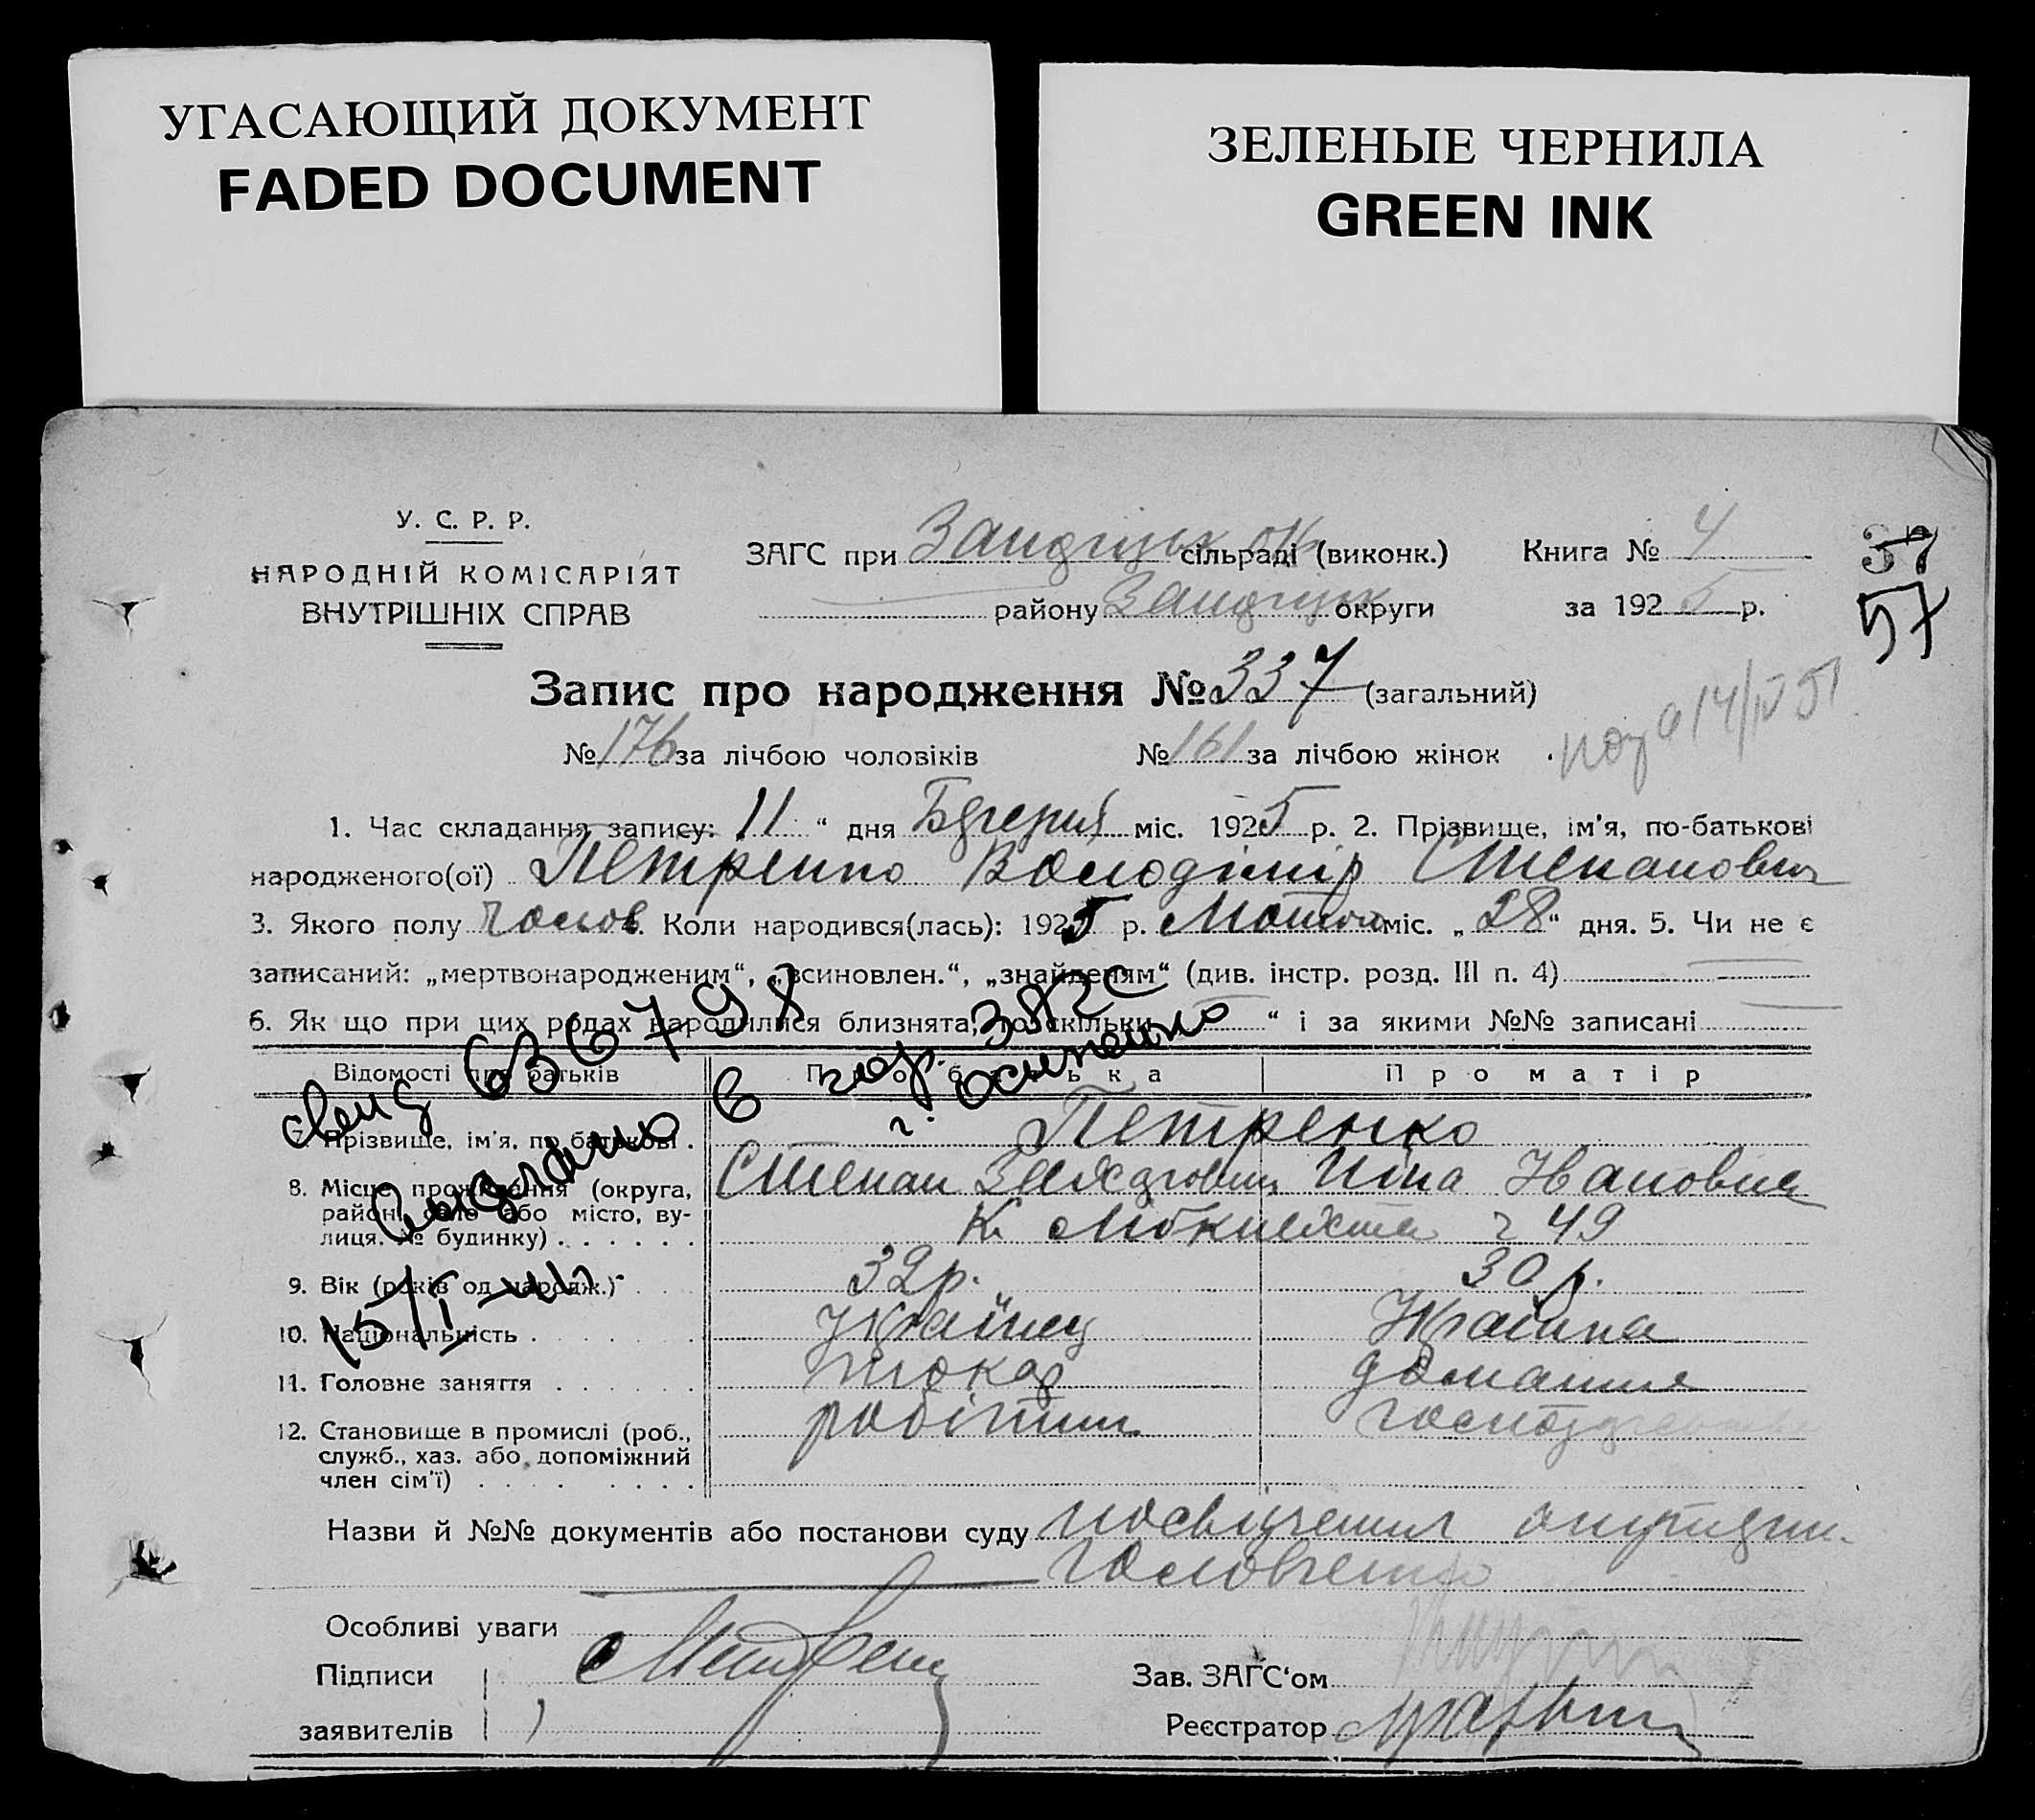 УГАСАЮЩИЙ ДОКУМЕНТ
FADED DOCUMENT
ЗЕЛЕНЫЕ ЧЕРНИЛА
GREEN INK
У. С. Р. Р.
НАРОДНІЙ КОМІСАРІЯТ
ВНУТРІШНІХ СПРАВ
ЗАГС при сільраді (виконк.)
Книга № 4
37
57
району округи
за 1925 р.
Запис про народження № 337 (загальний)
№ 176 за лічбою чоловіків № 161 за лічбою жінок
14/IV 51
1. Час складання запису: 11 “ дня міс. 1925 р. 2. Прізвище, ім'я, по-батькові
народженого(ої) Петренко Володімір Степанович
3. Якого полу чолов. Коли народився(лась): 1925 р. Лютого міс. „ 28 “ дня. 5. Чи не є
записаний: „мертвонародженим“, „всиновлен.“, „знайденям“ (див. інстр. розд. III п. 4)
6. Як що при цих родах народилися близнята, то скільки “ і за якими №№ записані
Відомості про батьків
Про батька
Про матір
7. Прізвище, ім'я, по батькові .
Петренко
Степан Иванoвна
8. Місце проживання (округа,
район, село або місто, ву-
лиця. № будинку)
К. Лібкнехта 49
9. Вік (років од народж.)
32 р.
30 р.
10. Національність
Українец
Українка
11. Головне заняття
токар
домашнє
12. Становище в промислі (роб.,
служб., хаз. або допоміжний
член сім'ї)
робітник
господарство
свид 63 6798
Выдано в гор. ЗАГС
г. Осипенко
15/I
Назви й №№ документів або постанови суду посвідчення
Особливі уваги
Підписи
заявителів
Зав. ЗАГС‘ом
Реєстратор